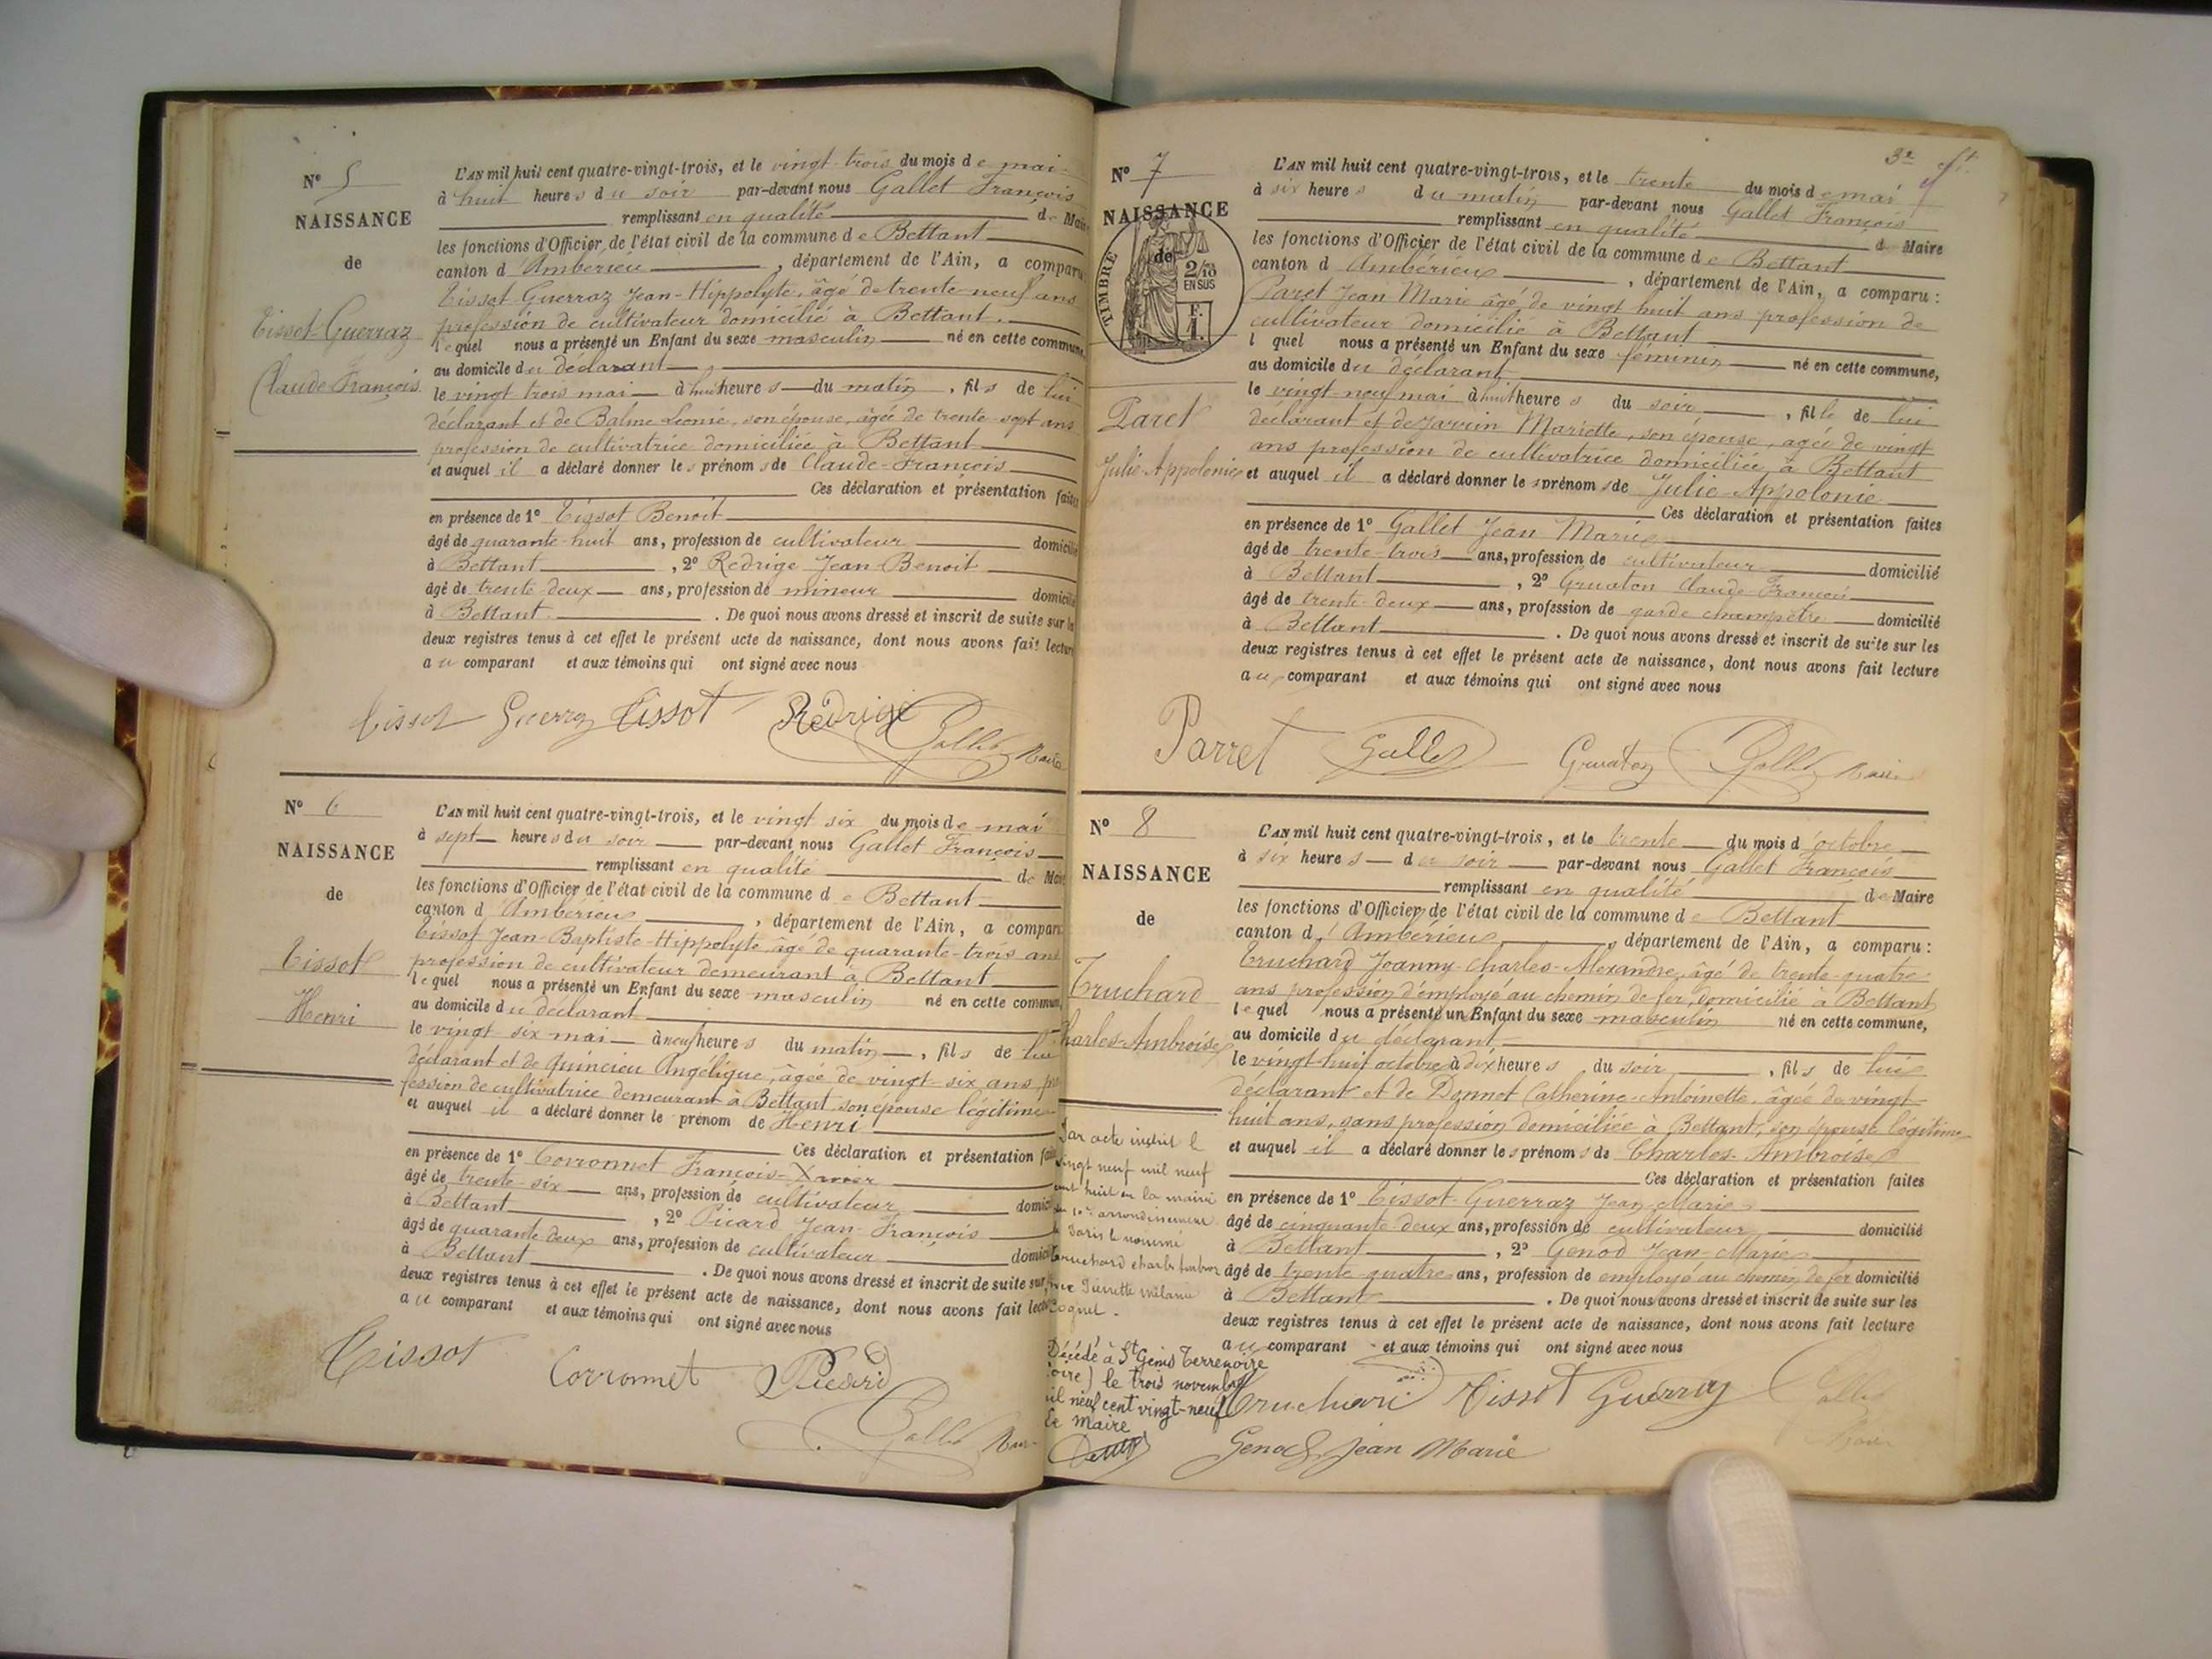 N° 5
NAISSANCE
de
Tissot-Guerraz
Claude François
L'AN mil huit cent quatre-vingt-trois, et le vingt-trois du mois de mai
à huit heures du soir par-devant nous Gallet François
remplissant en qualité de Maire
les fonctions d'Officier de l'état civil de la commune de Bettant
canton d'Ambérieu, département de l'Ain, a comparu
Tissot-Guerraz Jean-Hippolyte, âgé de trente-neuf ans
profession de cultivateur domicilié à Bettant.
lequel nous a présenté un Enfant du sexe masculin né en cette commune,
au domicile du déclarant,
le vingt trois mai à huit heures du matin, fils de lui
déclarant et de Balme Léonie, son épouse, âgée de trente-sept ans
profession de cultivatrice domiciliée à Bettant
et auquel il a déclaré donner les prénoms de Claude-François
Ces déclaration et présentation faites
en présence de 1° Tissot Benoit
âgé de quarante-huit ans, profession de cultivateur domicilié
à Bettant, 2° Redrige Jean-Benoit
âgé de trente-deux ans, profession de mineur domicilié
à Bettant. De quoi nous avons dressé et inscrit de suite sur les
deux registres tenus à cet effet le présent acte de naissance, dont nous avons fait lecture
au comparant et aux témoins qui ont signé avec nous
Tissot Guerraz Tissot Rédrige Gallet Maire
N° 6
NAISSANCE
de
Tissot
Henri
L'AN mil huit cent quatre-vingt-trois, et le vingt six du mois de mai
à sept heures du soir par-devant nous Gallet François
remplissant en qualité de Maire
les fonctions d'Officier de l'état civil de la commune de Bettant
canton d'Ambérieu, département de l'Ain, a comparu
Tissot Jean-Baptiste-Hippolyte, âgé de quarante-trois ans
profession de cultivateur demeurant à Bettant
lequel nous a présenté un Enfant du sexe masculin né en cette commune,
au domicile du déclarant
le vingt six mai à neuf heures du matin, fils de lui
déclarant et de Quincieu Angélique, âgée de vingt-six ans pro
fession de cultivatrice demeurant à Bettant son épouse légitime
et auquel il a déclaré donner le prénom de Henri
Ces déclaration et présentation faites
en présence de 1° Corronnet François-Xavier
âgé de trente-six ans, profession de cultivateur domicilié
à Bettant, 2° Picard Jean-François
âgé de quarante deux ans, profession de cultivateur domicilié
à Bettant. De quoi nous avons dressé et inscrit de suite sur
deux registres tenus à cet effet le présent acte de naissance, dont nous avons fait lecture
au comparant et aux témoins qui ont signé avec nous
Tissot Corronnet Picard
Gallet Maire
3e
N° 7
NAISSANCE
de
TIMBRE
2/10
EN SUS
F.
1.
Paret
Julie-Appolonie
L'AN mil huit cent quatre-vingt-trois, et le trente du mois de mai
à six heures du matin par-devant nous Gallet François
remplissant en qualité de Maire
les fonctions d'Officier de l'état civil de la commune de Bettant
canton d'Ambérieu, département de l'Ain, a comparu :
Paret Jean Marie âgé de vingt huit ans profession de
cultivateur domicilié à Bettant
lequel nous a présenté un Enfant du sexe féminin né en cette commune,
au domicile du déclarant
le vingt-neuf mai à huit heures du soir, fille de lui
déclarant et de Mariette, son épouse, âgée de vingt
ans profession de cultivatrice domiciliée à Bettant
et auquel il a déclaré donner les prénoms de Julie-Appolonie
Ces déclaration et présentation faites
en présence de 1° Gallet Jean Marie
âgé de trente-trois ans, profession de cultivateur domicilié
à Bettant, 2° Gruaton Claude-François
âgé de trente-deux ans, profession de garde champêtre domicilié
à Bettant. De quoi nous avons dressé et inscrit de suite sur les
deux registres tenus à cet effet le présent acte de naissance, dont nous avons fait lecture
au comparant et aux témoins qui ont signé avec nous
Parret Gallet Gruaton Gallet Maire
N° 8
NAISSANCE
de
Truchard
Charles-Ambroise
Par acte inscrit le
vingt neuf mil neuf
cent huit en la mairie
du 10e arrondissement
de Paris le nommé
Truchard charles ambroise
Pierrette mélanie
Coquet.
Décédé à St Genis Terrenoire
(Loire) le trois novembre
mil neuf cent vingt-neuf
Le Maire
L'AN mil huit cent quatre-vingt-trois, et le trente du mois d'octobre
à six heures du soir par-devant nous Gallet François
remplissant en qualité de Maire
les fonctions d'Officier de l'état civil de la commune de Bettant
canton d'Ambérieu, département de l'Ain, a comparu :
Truchard Joanny-Charles-Alexandre, âgé de trente-quatre
ans profession d'employé au chemin de fer, domicilié à Bettant
lequel nous a présenté un Enfant du sexe masculin né en cette commune,
au domicile du déclarant
le vingt-huit octobre à dix heures du soir, fils de lui
déclarant et de Donnet Catherine-Antoinette, âgée de vingt-
huit ans, sans profession domiciliée à Bettant, son épouse légitime
et auquel il a déclaré donner les prénoms de Charles-Ambroise
Ces déclaration et présentation faites
en présence de 1° Tissot-Guerraz Jean-Marie
âgé de cinquante deux ans, profession de cultivateur domicilié
à Bettant, 2° Genod Jean-Marie
âgé de trente-quatre ans, profession de employé au chemin de fer domicilié
à Bettant. De quoi nous avons dressé et inscrit de suite sur les
deux registres tenus à cet effet le présent acte de naissance, dont nous avons fait lecture
au comparant et aux témoins qui ont signé avec nous
Truchard Tissot Guerraz Gallet
Genod Jean Marie Maire